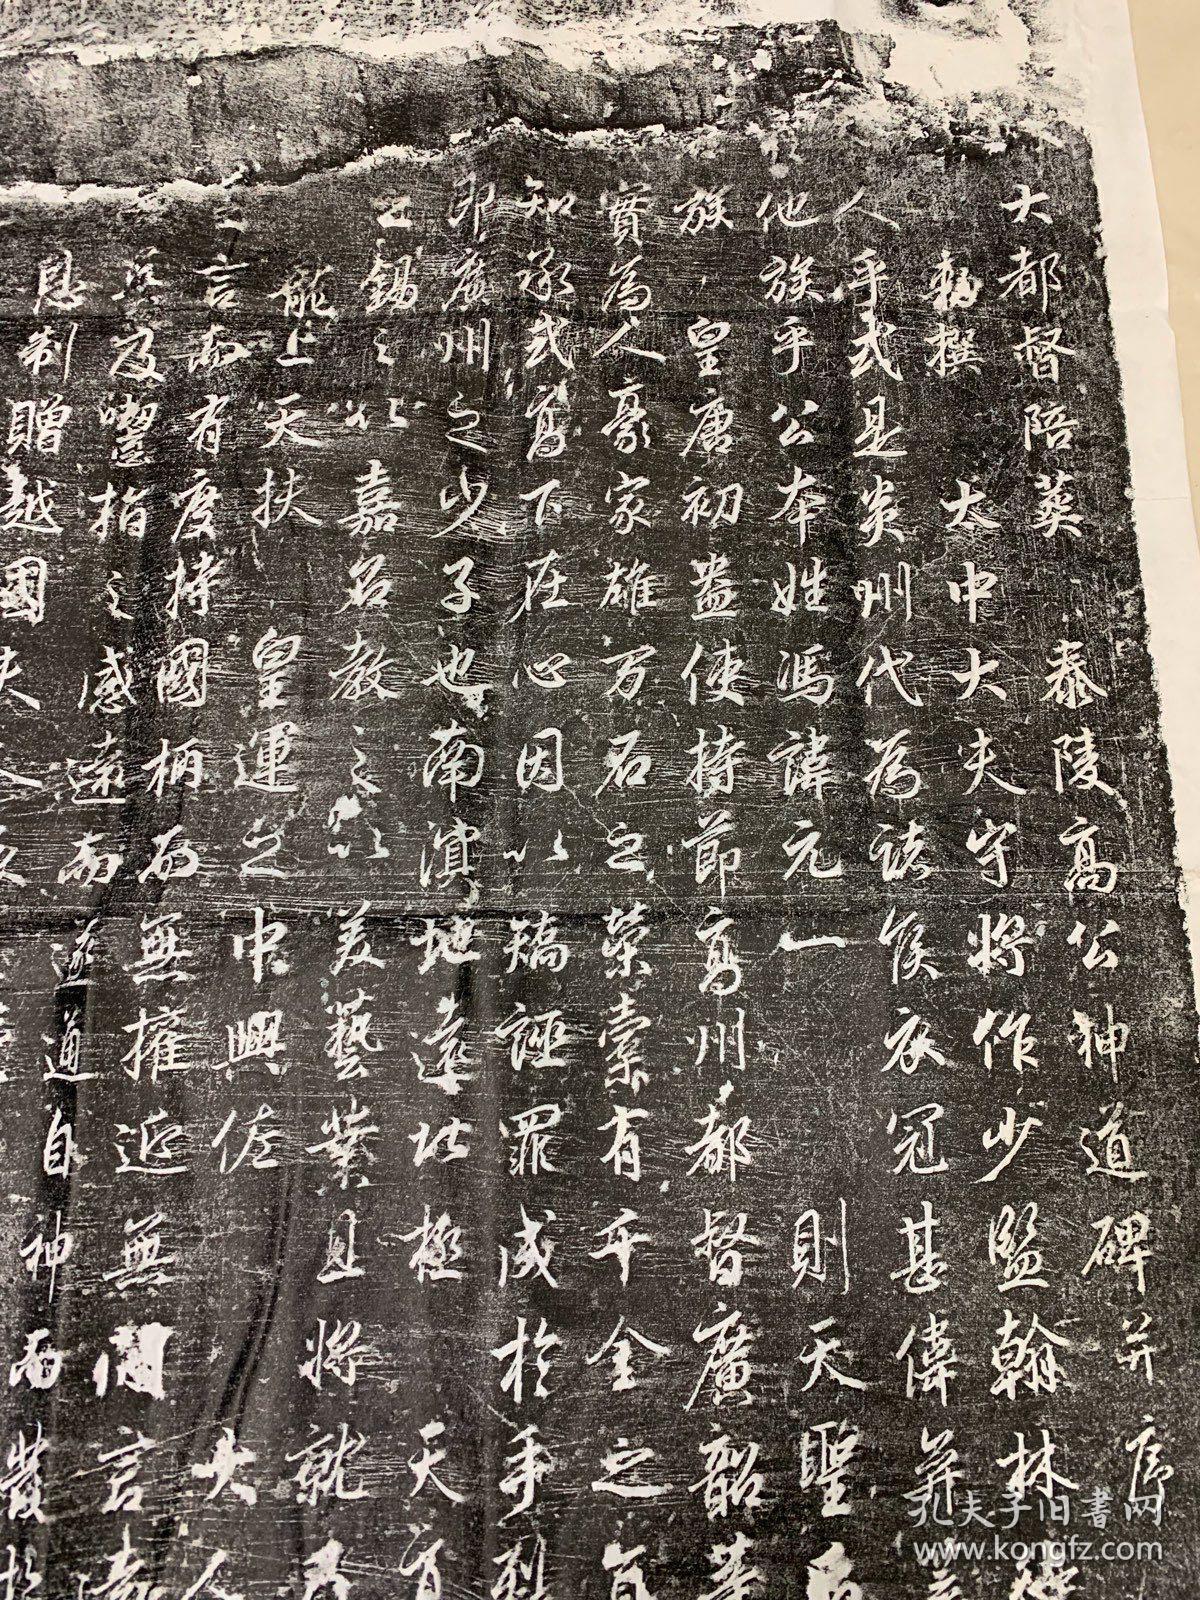 大都督陪葬　泰陵高公神道碑并序
勅撰　大中大夫守将作少監翰林
人乎式是炎州代為諸侯衣冠甚偉弈
他族乎公本姓馮諱元一　則天聖
族　皇唐初盎使持節高州都督廣韶
實為人豪家雄万石之榮橐有千金之
知承式高下在心因以矯誣罪成於手
即廣州之少子也南濱地遠北極　天
錫之以嘉名教之以美藝業且将就
能上天扶　皇運之中興佐　大人
言而有度持國柄而無權近無閒言
及嚙指之感遠而遂通自神而
恩制贈越國夫
孔夫子旧書网
www.kongfz.com